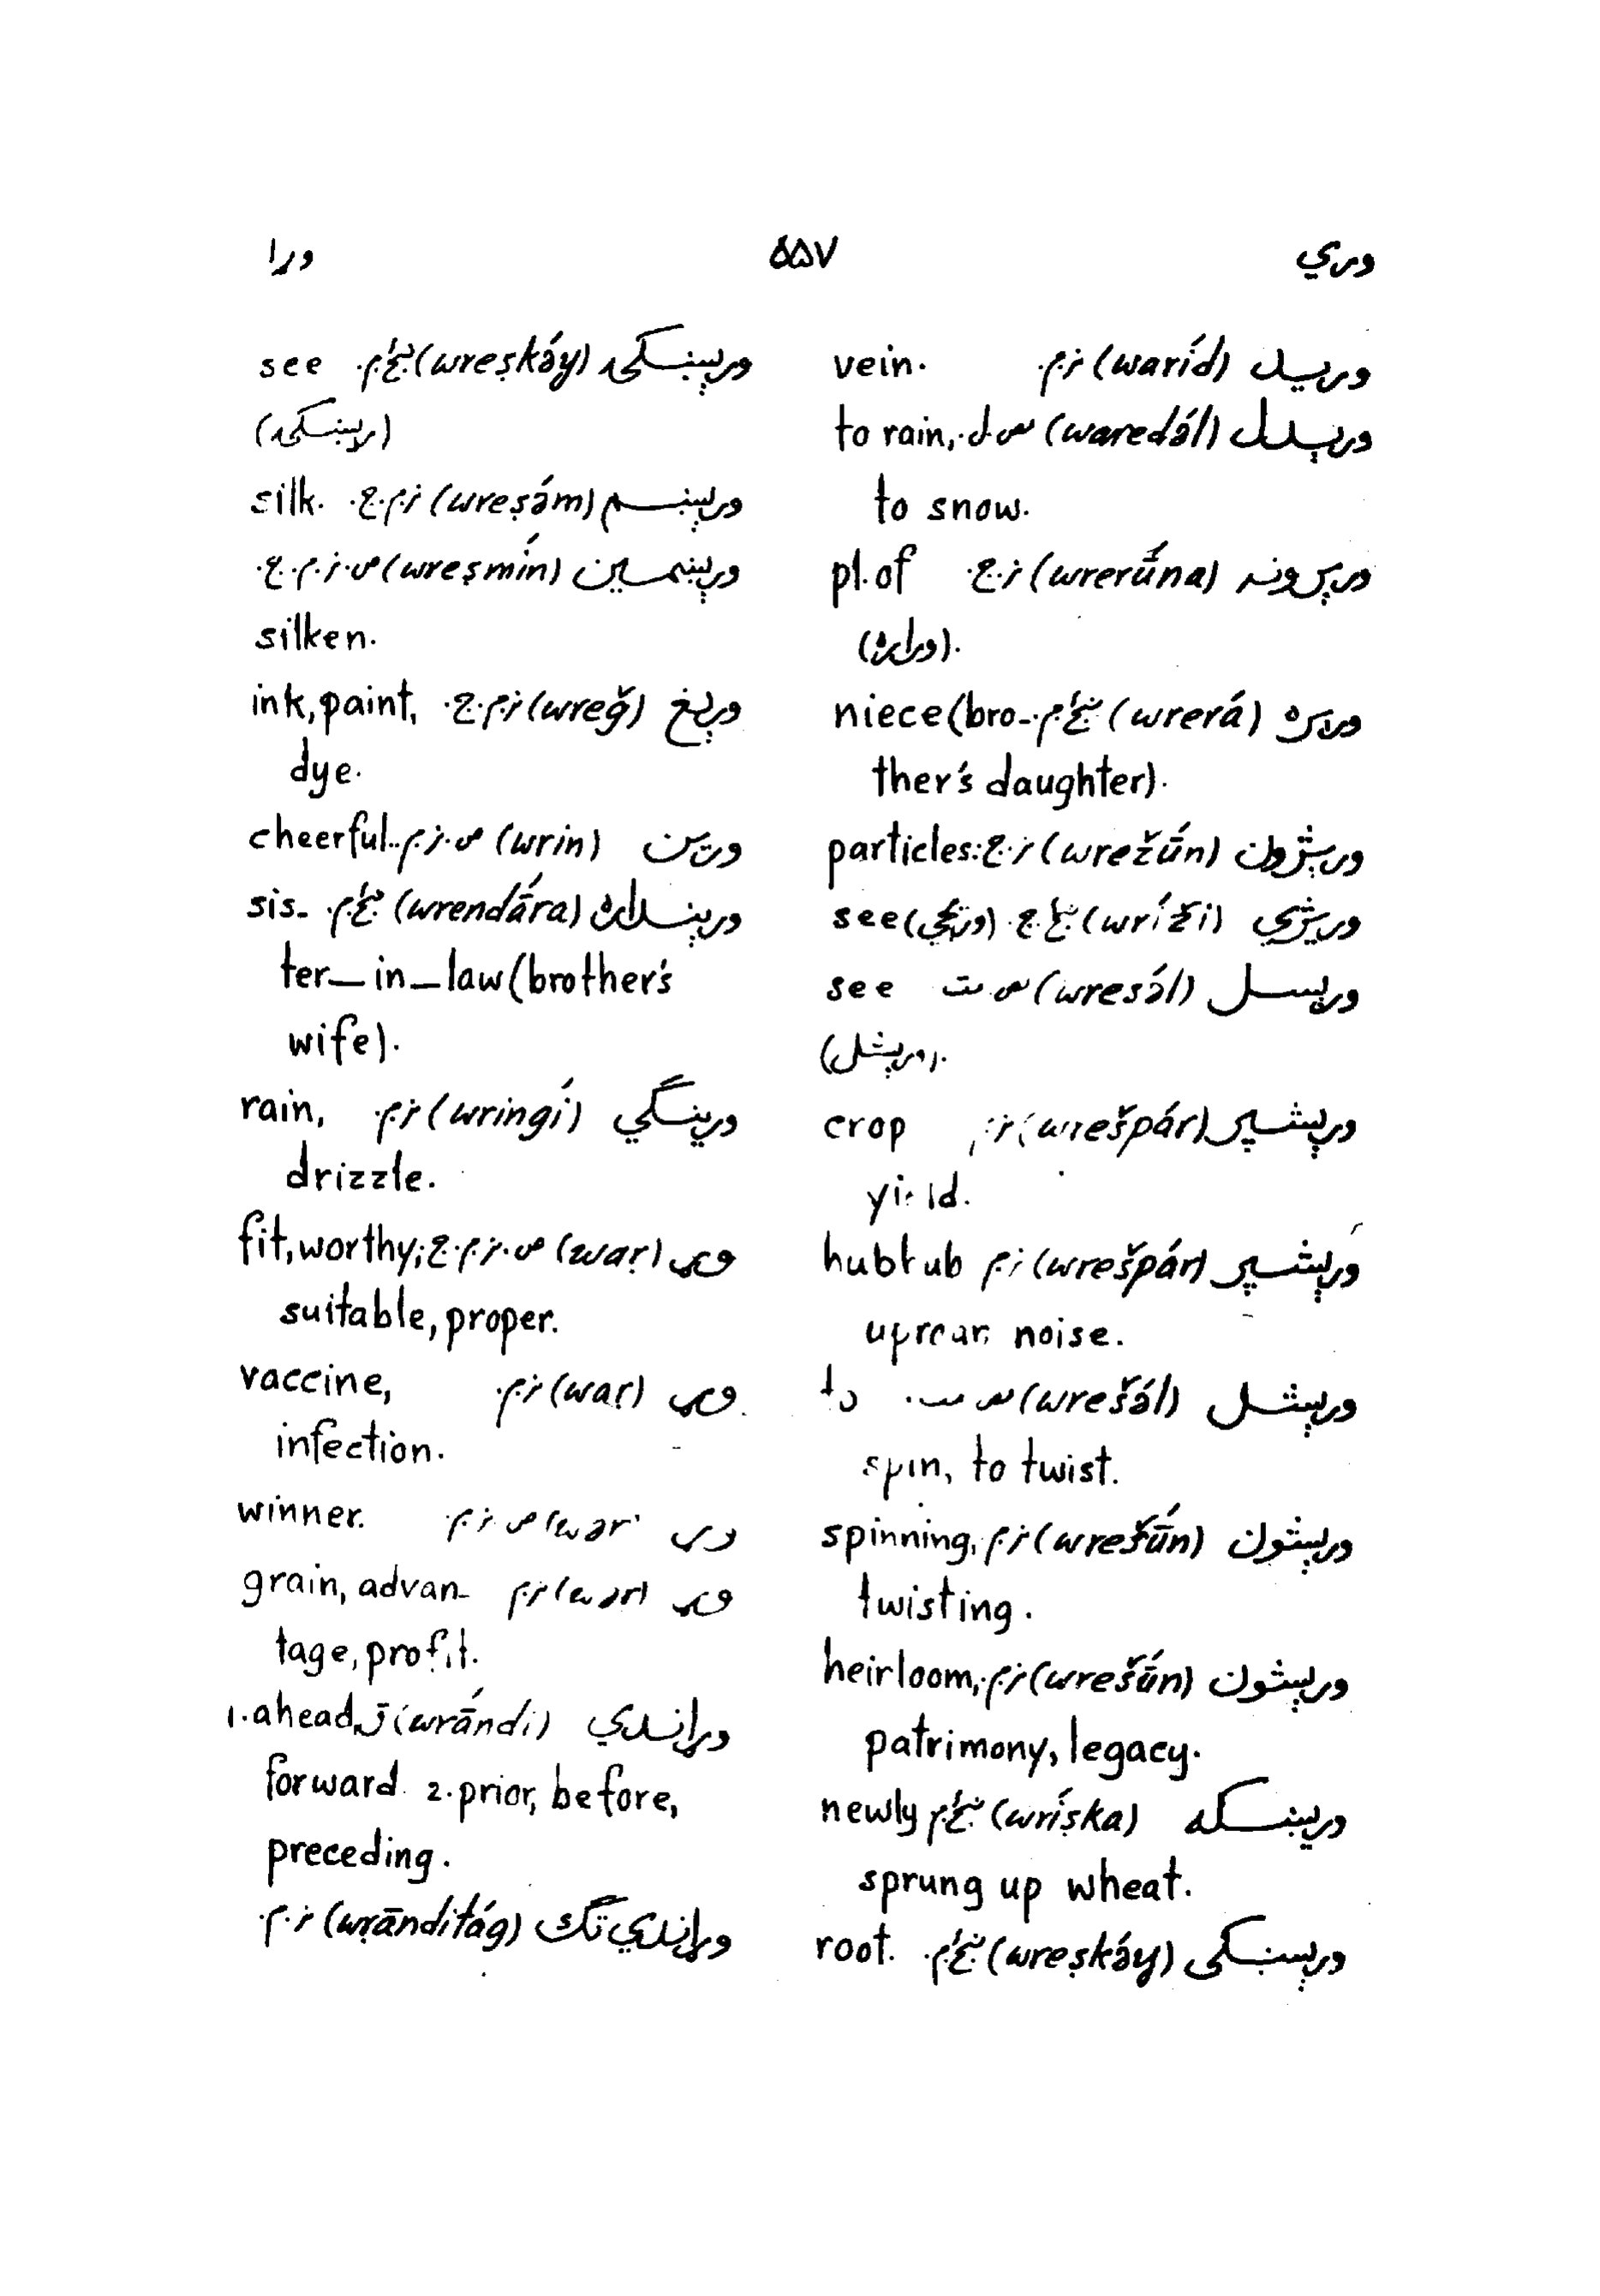 وري ۵۵۷ ورا
وريد (waríd) ن.م. vein.
ورېدل (waredә́l) ص.ل. to rain,
to snow.
ورېرونه (wrerū́na) ن.ج. pl.of
(وراره).
ورېره (wrerá) ښځ.م. niece (bro-
ther's daughter).
ورېژون (wrežū́n) ن.ج. particles:
وريژي (wríži) ښځ.ج. see (وريجي)
ورېسل (wresә́l) ص.مت. see
(ورېشل).
ورېشپر (wrešpár) ن.م crop
yield.
ورېشپر (wrešpár) ن.م hubbub
uproar, noise.
ورېشل (wrešә́l) ص.مت. to
spin, to twist.
ورېشون (wrešū́n) ن.م. spinning,
twisting.
ورېشون (wrešū́n) ن.م. heirloom,
patrimony, legacy.
وريښکه (wríṣka) ښځ.م newly
sprung up wheat.
ورېښکی (wreṣkә́y) ښځ.م. root.
ورېښکۍ (wreṣkә́y) ښځ.م. see
(ريښکۍ)
ورېښم (wreṣә́m) ن.م.ج. silk.
ورېښمين (wreṣmín) ص.ن.م.ج.
silken.
ورېغ (wreğ) ن.م.ج. ink, paint,
dye.
ورين (wrin) ص.ن.م. cheerful.
ورېنداره (wrendā́ra) ښځ.م. sis-
ter-in-law (brother's
wife).
ورينګي (wringí) ن.م. rain,
drizzle.
وړ (waṛ) ص.ن.م.ج. fit, worthy;
suitable, proper.
وړ (waṛ) ن.م. vaccine,
infection.
ص.ن.م. winner.
وړ ن.م grain, advan-
tage, profit.
وړاندي (wṛā́ndi) ق. 1. ahead,
forward. 2. prior, before,
preceding.
وړاندي تګ (wṛānditág) ن.م.